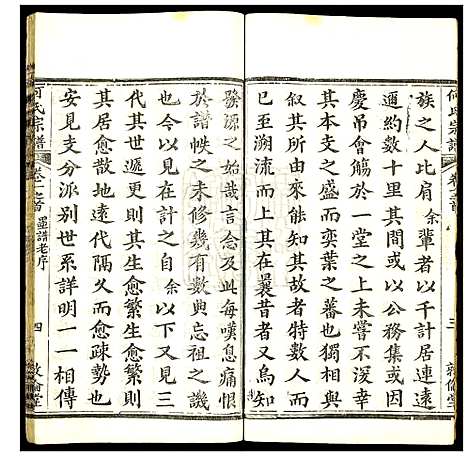 何氏宗譜
卷之首
三
敦倫堂
族之人比肩余輩者以千計居連
邇約數十里其間或以公務集或以
慶吊會觴於一堂之上未嘗不深幸
其本支之盛而奕葉之蕃也獨相與
尋其所由來能知者查特數人而
已余溯而上之其在曩昔者又烏知
發源之始哉言念及此每嘆息痛恨
於譜帙之未修幾有數典忘祖之譏
也今以見在計之自余以下又見三
代其世遞更其生愈繁生愈繁
其居愈散地以年代隔久而愈疎勢也
安見支分派別世系詳明一一相傳
何氏宗譜
卷之首
墨譜老序
四
敦倫堂